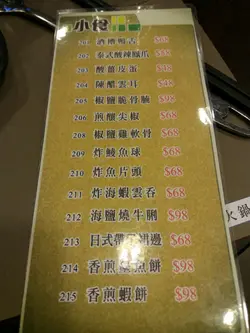 小食
201 酒糟鴨舌 $68
202 泰式酸辣鳳爪 $58
203 酸薑皮蛋 $38
204 陳醋雲耳 $48
205 椒鹽脆骨腩 $98
206 煎釀尖椒 $68
208 椒鹽雞軟骨 $68
209 炸鯪魚球 $68
210 炸魚片頭 $68
211 炸海蝦雲吞 $68
212 海鹽燒牛脷 $98
213 日式帶子裙邊 $68
214 香煎魚餅 $98
215 香煎蝦餅 $98
火鍋